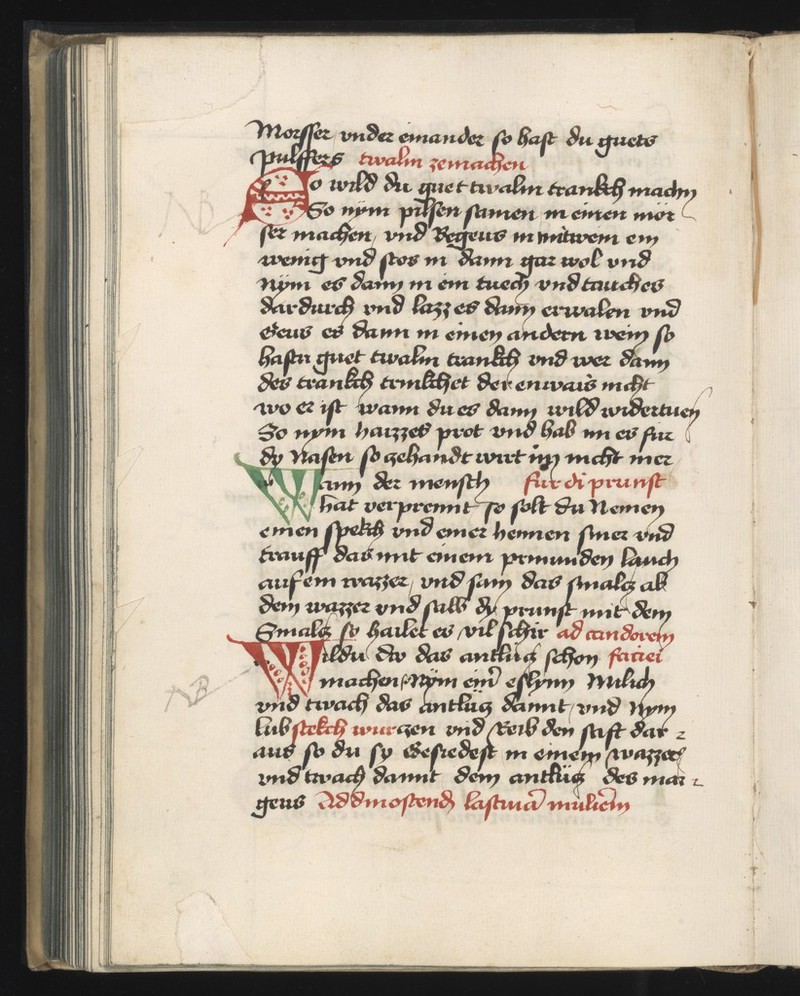 Morsser vnder einander so hast du guets
pulffers twalm zemachen
So wild du guet twalm trankch machn
So nym pilsen samen in einen mor
ser machen, vnd Begeus in mit wein ein
wenig vnd stos in dann gar wol vnd
Nym es dann in ein tuech vnd tauch es
dardurch vnd lazz es dann erwalen vnd
Geus es dann in einen andern wein so
hastu guet twalm trankch vnd wer dann
des trankch trinkchet der enwais nicht
wo er ist wann du es dann wild widertuen
So nym haizzes prot vnd hab im es für
dy Nasen so zehandt wirt im nicht mer
Wann der mensch für di prunst
hat verprennt so solt du Nemen
einen spekch vnd einer hennen smer vnd
trauff das mit einem prinunden lauch
auf ein wazzer, vnd sam das smalcz ab
dem wazzer vnd salb dy prunst mit dem
Smalcz so hailet es vil schir ad candorem
Wildu dir das antlücz schon faciei
machen, Nym ein eslynn Milich
vnd twach das antlücz damit, vnd Nym
lubstekch wurczen vnd Reib den saft dar
aus so du sy Gesiedest in einem wazzer
vnd twach damit dem antlücz des mar
gens Ad dinostend lasciuia mulierem